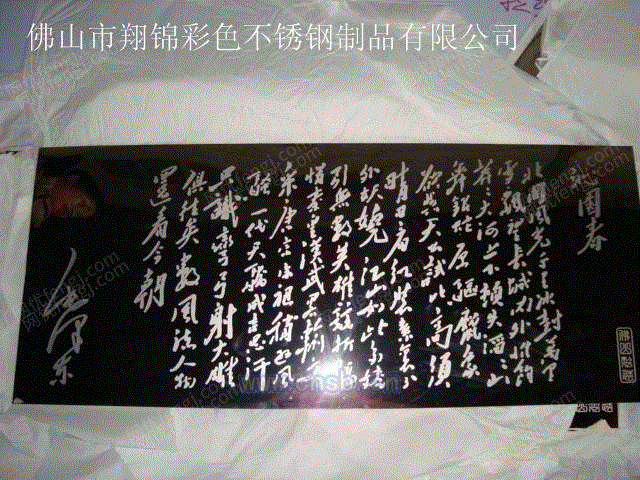 佛山市翔锦彩色不锈钢制品有限公司
沁园春
北国风光千里冰封万里
雪飘望长城内外惟余
莽莽大河上下顿失滔滔山
舞银蛇原驰蜡象
欲与天公试比高须
晴日看红装素裹分
外妖娆江山如此多娇
引无数英雄竞折腰
惜秦皇汉武略输文
采唐宗宋祖稍逊风
骚一代天骄成吉思汗
只识弯弓射大雕
俱往矣数风流人物
还看今朝
毛泽东